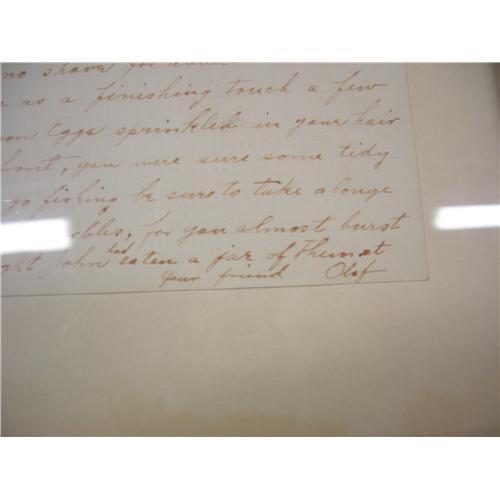 no shave for about
as a finishing touch a few
Eggs sprinkled in your hair
front, you were sure some tidy
go fishing be sure to take alonge
for you almost burst
John had eaten a jar of them at
Your friend Olof